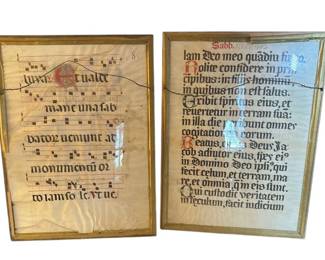 Et ualde
mane una sab
bator ueniunt
monumentũ or
to iam
Sabb.
lam Deo meo quãdiu fuero.
Nolite confidere in prin
cipibus: in filijs hominũ,
in quibus non est salus.
Exibit spiritus eius, et
reuertetur in terram suã:
in illa die peribunt omnes
cogitationes eorum.
Beatus, cuius Deus Ja
cob adiutor eius, spes
in Domino Deo qui
fecit celum, et terram, ma
re, et omnia, in eis sunt.
Qui custodit veritatem
in seculum, facit iudicium